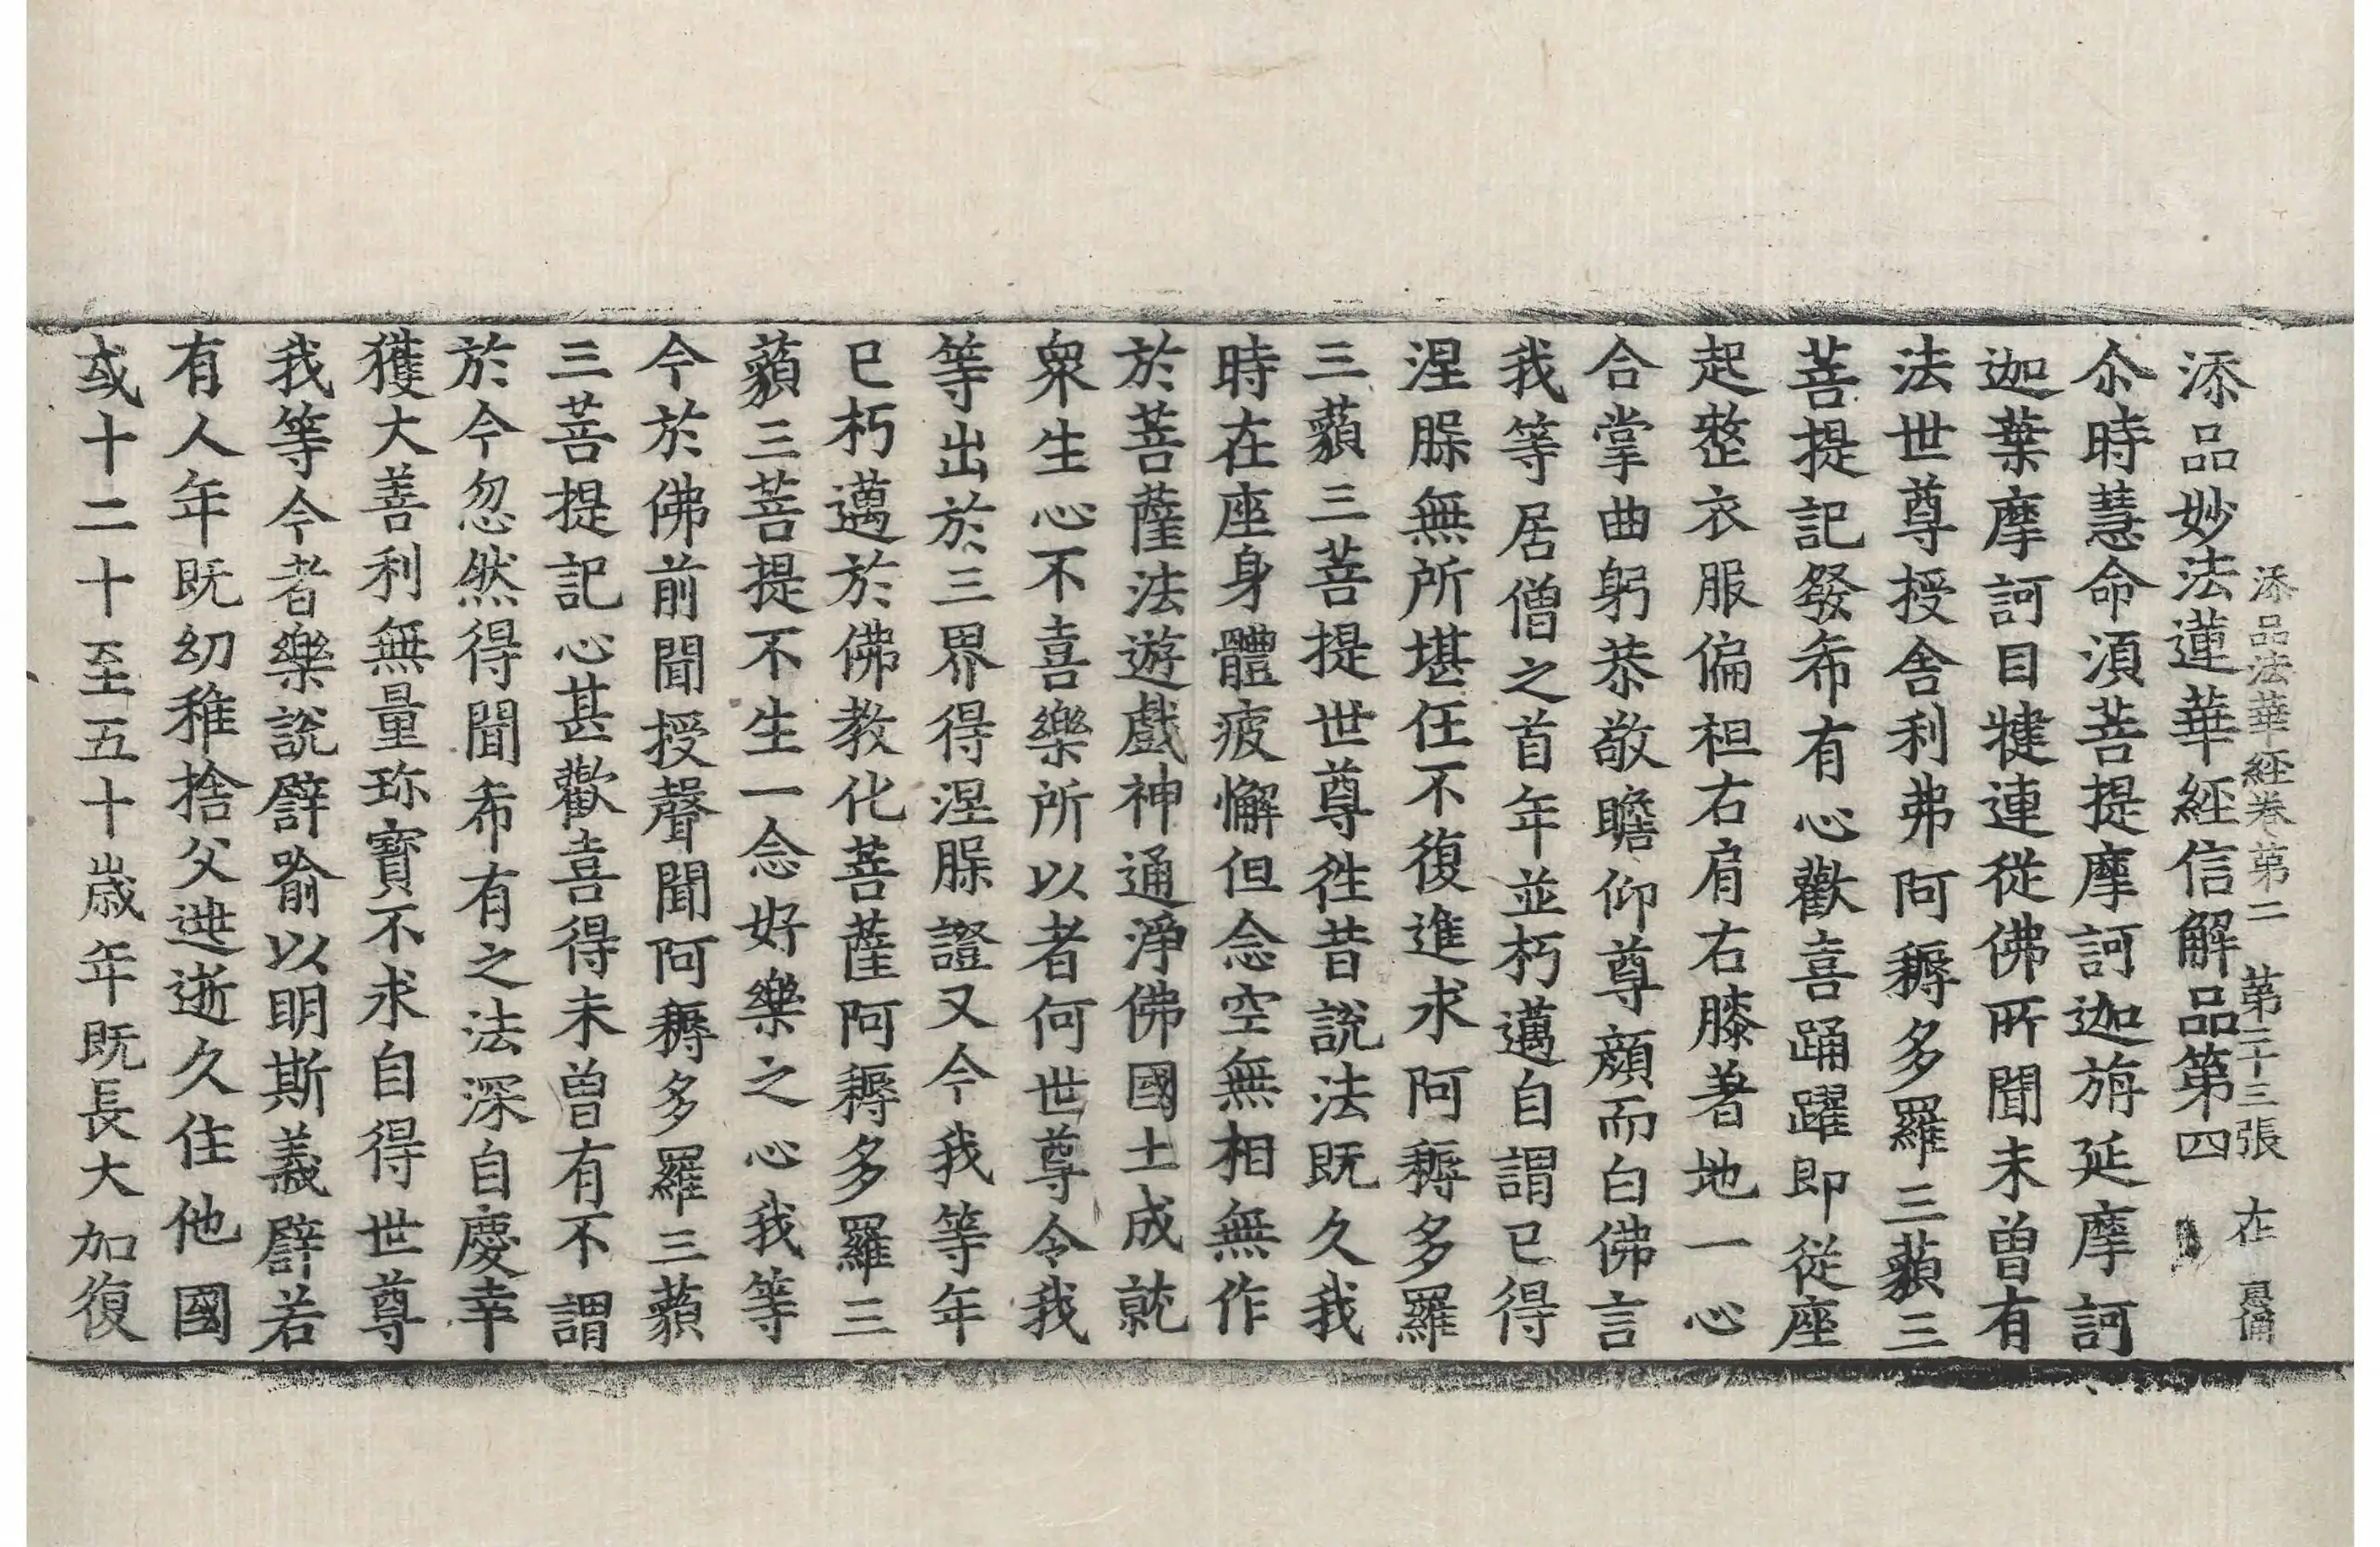 添品法華經卷第二 第二十三張 在
添品妙法蓮華經信解品第四
尒時慧命湏菩提摩訶迦旃延摩訶
迦葉摩訶目犍連從佛所聞未曾有
法世尊授舍利弗阿耨多羅三藐三
菩提記發希有心歡喜踊躍即從座
起整衣服偏袒右肩右膝著地一心
合掌曲躬恭敬瞻仰尊顏而白佛言
我等居僧之首年並朽邁自謂已得
涅槃無所堪任不復進求阿耨多羅
三藐三菩提世尊往昔說法既久我
時在座身體疲懈但念空無相無作
於菩薩法遊戲神通淨佛國土成就
衆生心不喜樂所以者何世尊令我
等出於三界得涅槃證又今我等年
已朽邁於佛教化菩薩阿耨多羅三
藐三菩提不生一念好樂之心我等
今於佛前聞授聲聞阿耨多羅三藐
三菩提記心甚歡喜得未曾有不謂
於今忽然得聞希有之法深自慶幸
獲大善利無量珎寶不求自得世尊
我等今者樂說譬喻以明斯義譬若
有人年既幼稚捨父逃逝久住他國
或十二十至五十歲年既長大加復